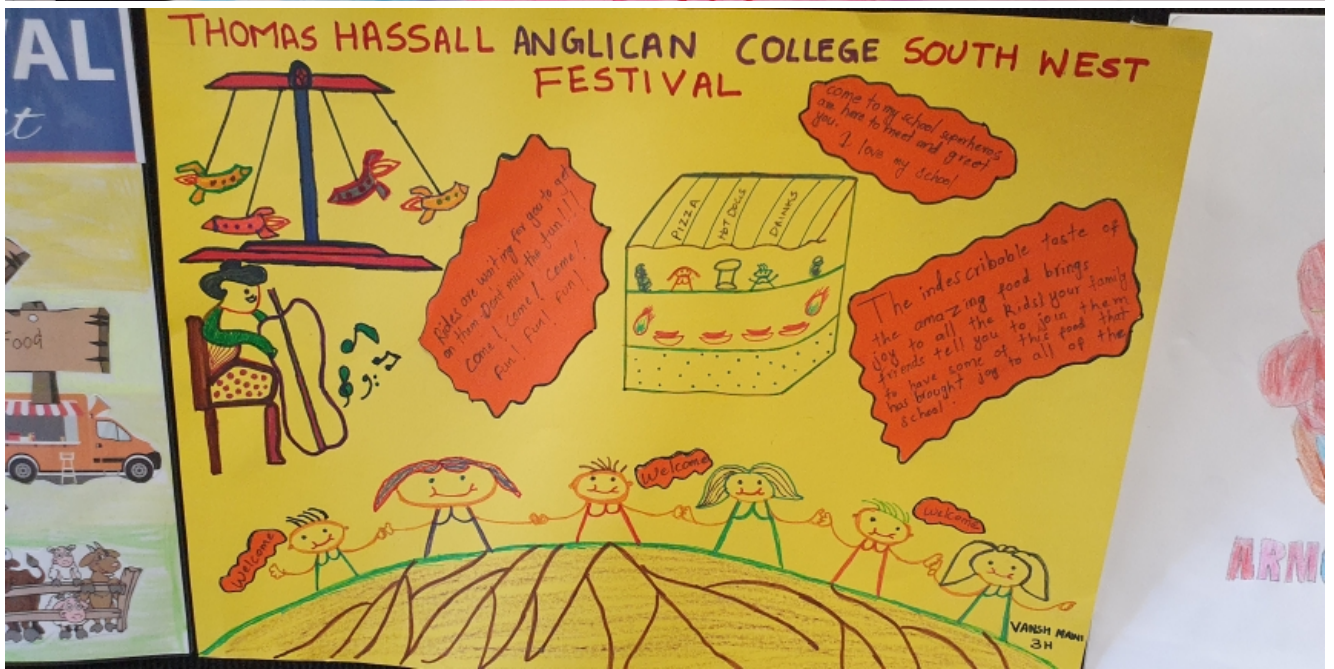 AL
THOMAS HASSALL ANGLICAN COLLEGE SOUTH WEST
FESTIVAL
come to my school superheros
are here to meet and greet
you.
I love my school
Rides are waiting for you to get
on them Dont miss the fun!!!!
Come! Come! Come!
Fun! Fun! Fun!
PIZZA
HOT DOGS
DRINKS
The indescribable taste of
the amazing food brings
joy to all the Kids! your family
friends tell you to join them
to have some of this food that
has brought joy to all of the
school.
Food
Welcome
Welcome
Welcome
VANSH MAINI
3H
ARN